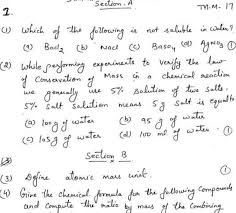 Section-A
T.M.M. 17
1.
(1) Which of the following is not soluble in water?
(a) BaCl2 (b) NaCl (c) BaSO4 (d) AgNO3 (1)
(2) While performing experiments to verify the law
of Conservation of Mass in a chemical reaction
we generally use 5% solution of two salts.
5% Salt Solution means 5g Salt is equal to
(a) 100 g of water (b) 95 g of water
(c) 105 g of water (d) 100 ml of water (1)
Section B
(3) Define atomic mass unit. (1)
(4) Give the chemical formula for the following Compounds
and Compute the ratio by mass of the Combining